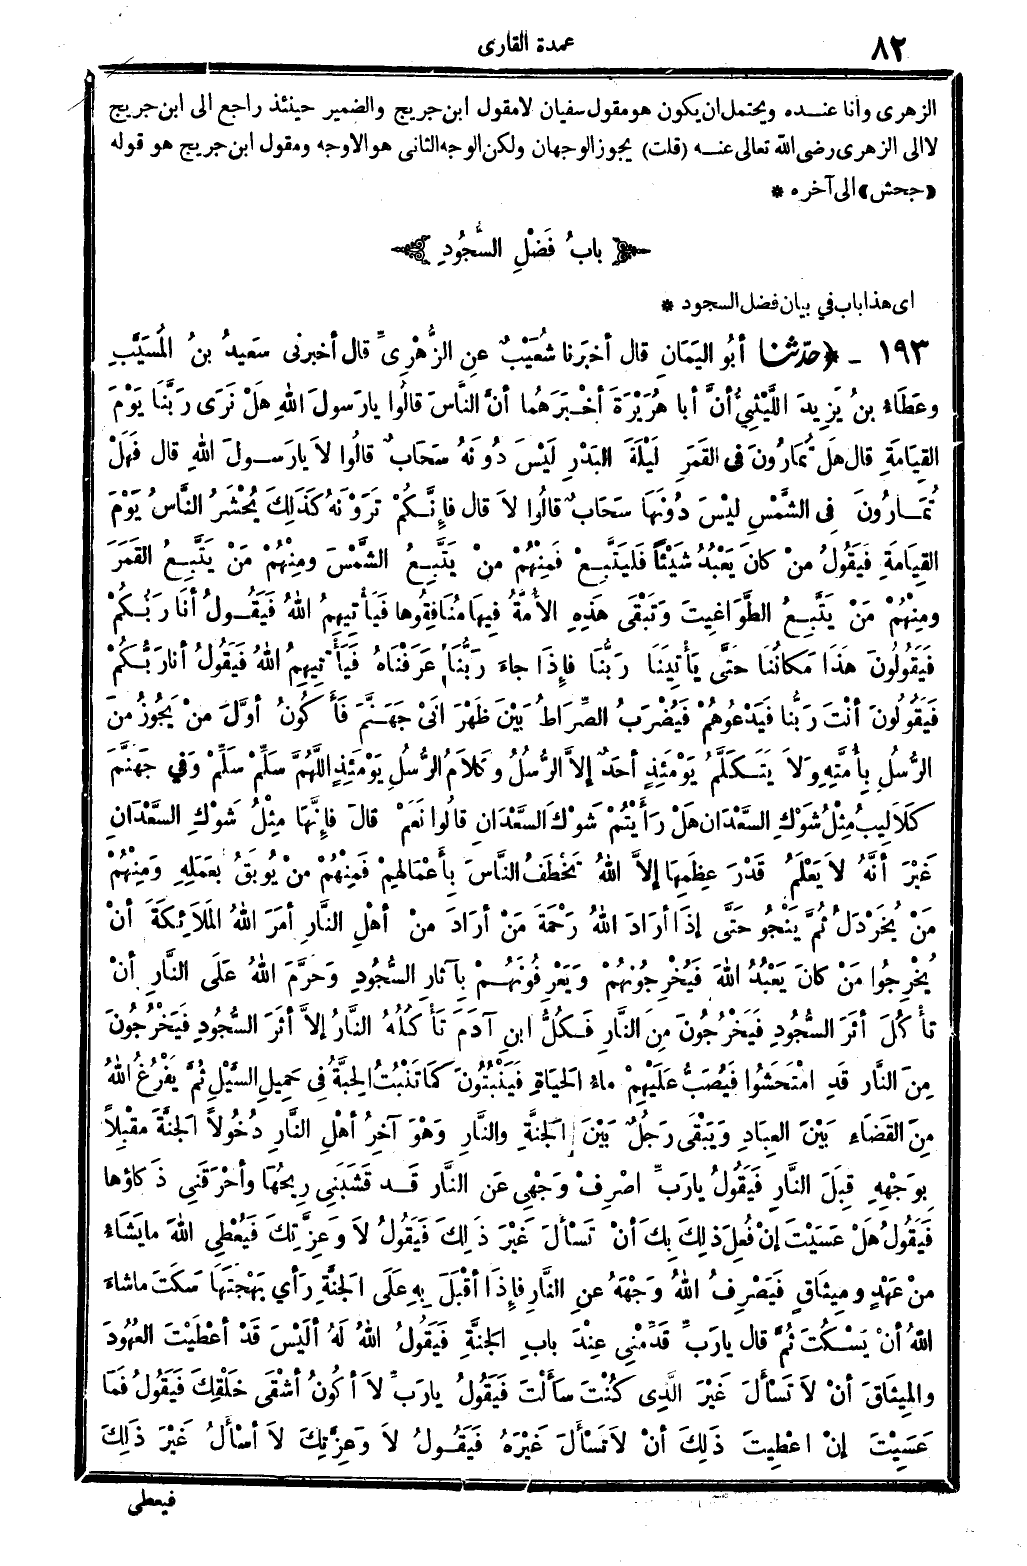 ٨٢
عمدة القارى
الزهرى وأنا عنده ويحتمل ان يكون هو مقول سفيان لا مقول ابن جريج والضمير حينئذ راجع الى ابن جريج
لا الى الزهرى رضى الله تعالى عنه (قلت) يجوز الوجهان ولكن الوجه الثانى هو الاوجه ومقول ابن جريج هو قوله
«جحش» الى آخره *
﴿ بابُ فَضْلِ السُّجُودِ ﴾
اى هذا باب في بيان فضل السجود *
١٩٣ ـ ﴿حدّثنا أبُو اليَمَانِ قال أخبَرنا شُعَيْبٌ عنِ الزُّهْرِىِّ قال أخبرنى سَعيدُ بنُ المُسَيَّبِ
وعَطَاءُ بنُ يَزِيدَ اللَّيْثِيُّ أنَّ أبا هُرَيْرَةَ أخْبَرَهُما أنَّ النَّاسَ قالُوا يارسولَ اللهِ هَلْ نَرَى رَبَّنَا يَوْمَ
القِيَامَةِ قال هَلْ تُمَارُونَ فى القمَرِ لَيْلَةَ البَدْرِ لَيْسَ دُونَهُ سَحَابٌ قالُوا لاَ يارسولَ اللهِ قال فَهَلْ
تُمَارُونَ فِى الشَّمْسِ لَيْسَ دُونَهَا سَحَابٌ قالُوا لاَ قال فإنَّكُمْ تَرَوْنَهُ كَذَلِكَ يُحْشَرُ النَّاسُ يَوْمَ
القِيَامَةِ فَيَقُولُ مَنْ كانَ يَعْبُدُ شَيْئاً فَلْيَتَّبِعْ فَمِنْهُمْ مَنْ يَتَّبِعُ الشَّمْسَ ومِنْهُمْ مَنْ يَتَّبِعُ القَمَرَ
ومِنْهُمْ مَنْ يَتَّبِعُ الطَّوَاغِيتَ وَتَبْقَى هَذِهِ الأُمَّةُ فِيهَا مُنَافِقُوها فَيَأْتِيهِمُ اللهُ فَيَقُولُ أنَا رَبُّكُمْ
فَيَقُولُونَ هَذَا مَكانُنَا حَتَّى يَأْتِيَنَا رَبُّنَا فإِذَا جاءَ رَبُّنَا عَرَفْنَاهُ فَيَأْتِيهِمُ اللهُ فَيَقُولُ أنا رَبُّكُمْ
فَيَقُولُونَ أنْتَ رَبُّنا فَيَدْعُوهُمْ فَيُضْرَبُ الصِّرَاطُ بَيْنَ ظَهْرَانَىْ جَهَنَّمَ فَأَكُونُ أوَّلَ مَنْ يَجُوزُ من
الرُّسُلِ بِأُمَّتِهِ وَلاَ يَتَكَلَّمُ يَوْمَئِذٍ أحَدٌ إلاَّ الرُّسُلُ وكَلاَمُ الرُّسُلِ يَوْمَئِذٍ اللَّهُمَّ سَلِّمْ سَلِّمْ وَفي جَهَنَّمَ
كَلاَلِيبُ مِثْلُ شَوْكِ السَّعْدَانِ هَلْ رَأيْتُمْ شَوْكَ السَّعْدَانِ قالُوا نَعَمْ قالَ فإِنَّهَا مِثْلُ شَوْكِ السَّعْدَانِ
غَيْرَ أنَّهُ لاَ يَعْلَمُ قَدْرَ عِظَمِهَا إلاَّ اللهُ تَخْطَفُ النَّاسَ بِأَعْمَالِهِمْ فَمِنْهُمْ مَنْ يُوبَقُ بِعَمَلِهِ وَمِنْهُمْ
مَنْ يُخَرْدَلُ ثُمَّ يَنْجُو حَتَّى إذَا أرَادَ اللهُ رَحْمَةَ مَنْ أرَادَ مِنْ أهْلِ النَّارِ أمَرَ اللهُ المَلاَئِكَةَ أنْ
يُخْرِجُوا مَنْ كانَ يَعْبُدُ اللهَ فَيُخْرِجُونَهُمْ وَيَعْرِفُونَهُمْ بِآثارِ السُّجُودِ وَحَرَّمَ اللهُ عَلَى النَّارِ أنْ
تأْكُلَ أثَرَ السُّجُودِ فَيَخْرُجُونَ مِنَ النَّارِ فَكُلُّ ابنِ آدَمَ تَأْكُلُهُ النَّارُ إلاَّ أثَرَ السُّجُودِ فَيَخْرُجُونَ
مِنَ النَّارِ قَدِ امْتَحَشُوا فَيُصَبُّ عَلَيْهِمْ ماءُ الحَيَاةِ فَيَنْبُتُونَ كَمَا تَنْبُتُ الحِبَّةُ فِى حَمِيلِ السَّيْلِ ثُمَّ يَفْرُغُ اللهُ
مِنَ القَضَاءِ بَيْنَ العِبَادِ وَيَبْقَى رَجُلٌ بَيْنَ الجَنَّةِ والنَّارِ وَهْوَ آخِرُ أهْلِ النَّارِ دُخُولاً الجَنَّةَ مقْبِلاً
بوَجْهِهِ قِبَلَ النَّارِ فَيَقُولُ يارَبِّ اصْرِفْ وَجْهِى عَنِ النَّارِ قَدْ قَشَبَنِى رِيحُهَا وأحْرَقَنِى ذَكاؤها
فَيَقُولُ هَلْ عَسَيْتَ إنْ فُعِلَ ذلِكَ بِكَ أنْ تَسْألَ غَيْرَ ذَلِكَ فَيَقُولُ لاَ وَعِزَّتِكَ فَيُعْطِى اللهَ مايَشَاءُ
مِنْ عَهْدٍ ومِيثَاقٍ فَيَصْرِفُ اللهُ وَجْهَهُ عنِ النَّارِ فإذَا أقْبَلَ بِهِ عَلَى الجَنَّةِ رَأى بَهْجَتَهَا سَكَتَ ماشاءَ
اللهُ أنْ يَسْكُتَ ثُمَّ قال يارَبِّ قَدِّمْنِى عِنْدَ بابِ الجَنَّةِ فَيَقُولُ اللهُ لَهُ ألَيْسَ قَدْ أعْطَيْتَ العُهُودَ
والمِيثَاقَ أنْ لاَ تَسْألَ غَيْرَ الَّذِى كُنْتَ سَألْتَ فَيَقُولُ يارَبِّ لاَ أكُونُ أشْقَى خَلْقِكَ فَيَقُولُ فَمَا
عَسَيْتَ إنْ اعْطِيتَ ذَلِكَ أنْ لاَ تَسْألَ غَيْرَهُ فَيَقُولُ لاَ وَعِزَّتِكَ لاَ أسْألُ غَيْرَ ذَلِكَ
فيعطى